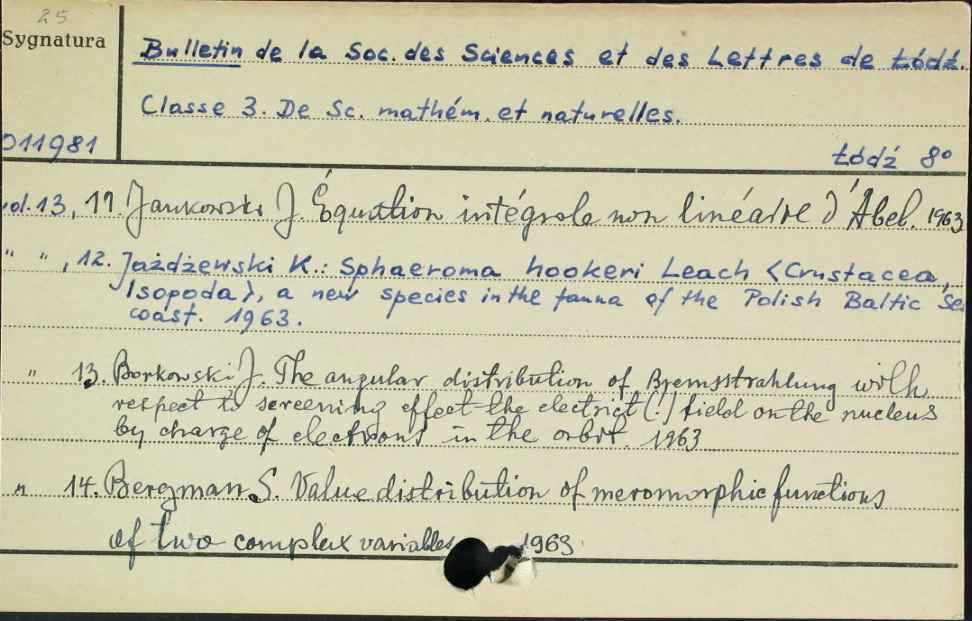 25
Sygnatura
Bulletin de la Soc. des Sciences et des Lettres de Łódź.
Classe 3. De Sc. mathém. et naturelles.
011981
Łódź 8°
ol. 13, 11. Jankowski J. Équation intégrale non linéaire d'Abel. 1963
" ", 12. Jażdżewski K.: Sphaeroma hookeri Leach <Crustacea,
Isopoda>, a new species in the fauna of the Polish Baltic Se
coast. 1963.
" 13. Borkowski J. The angular distribution of Bremsstrahlung with
respect to screening effect the electrict (!) field on the nucleus
by charge of electrons in the orbit. 1963
" 14. Bergman S. Value distribution of meromorphic functions
of two complex variables 1963